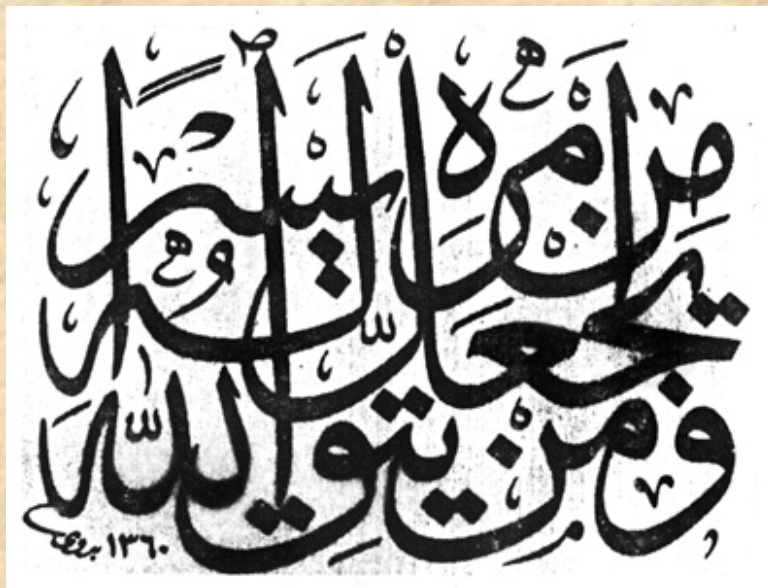 وَمَنْ يَتَّقِ اللّٰهَ
يَجْعَل لَّهُ
مِنْ أَمْرِهِ يُسْرًا
١٣٦٠